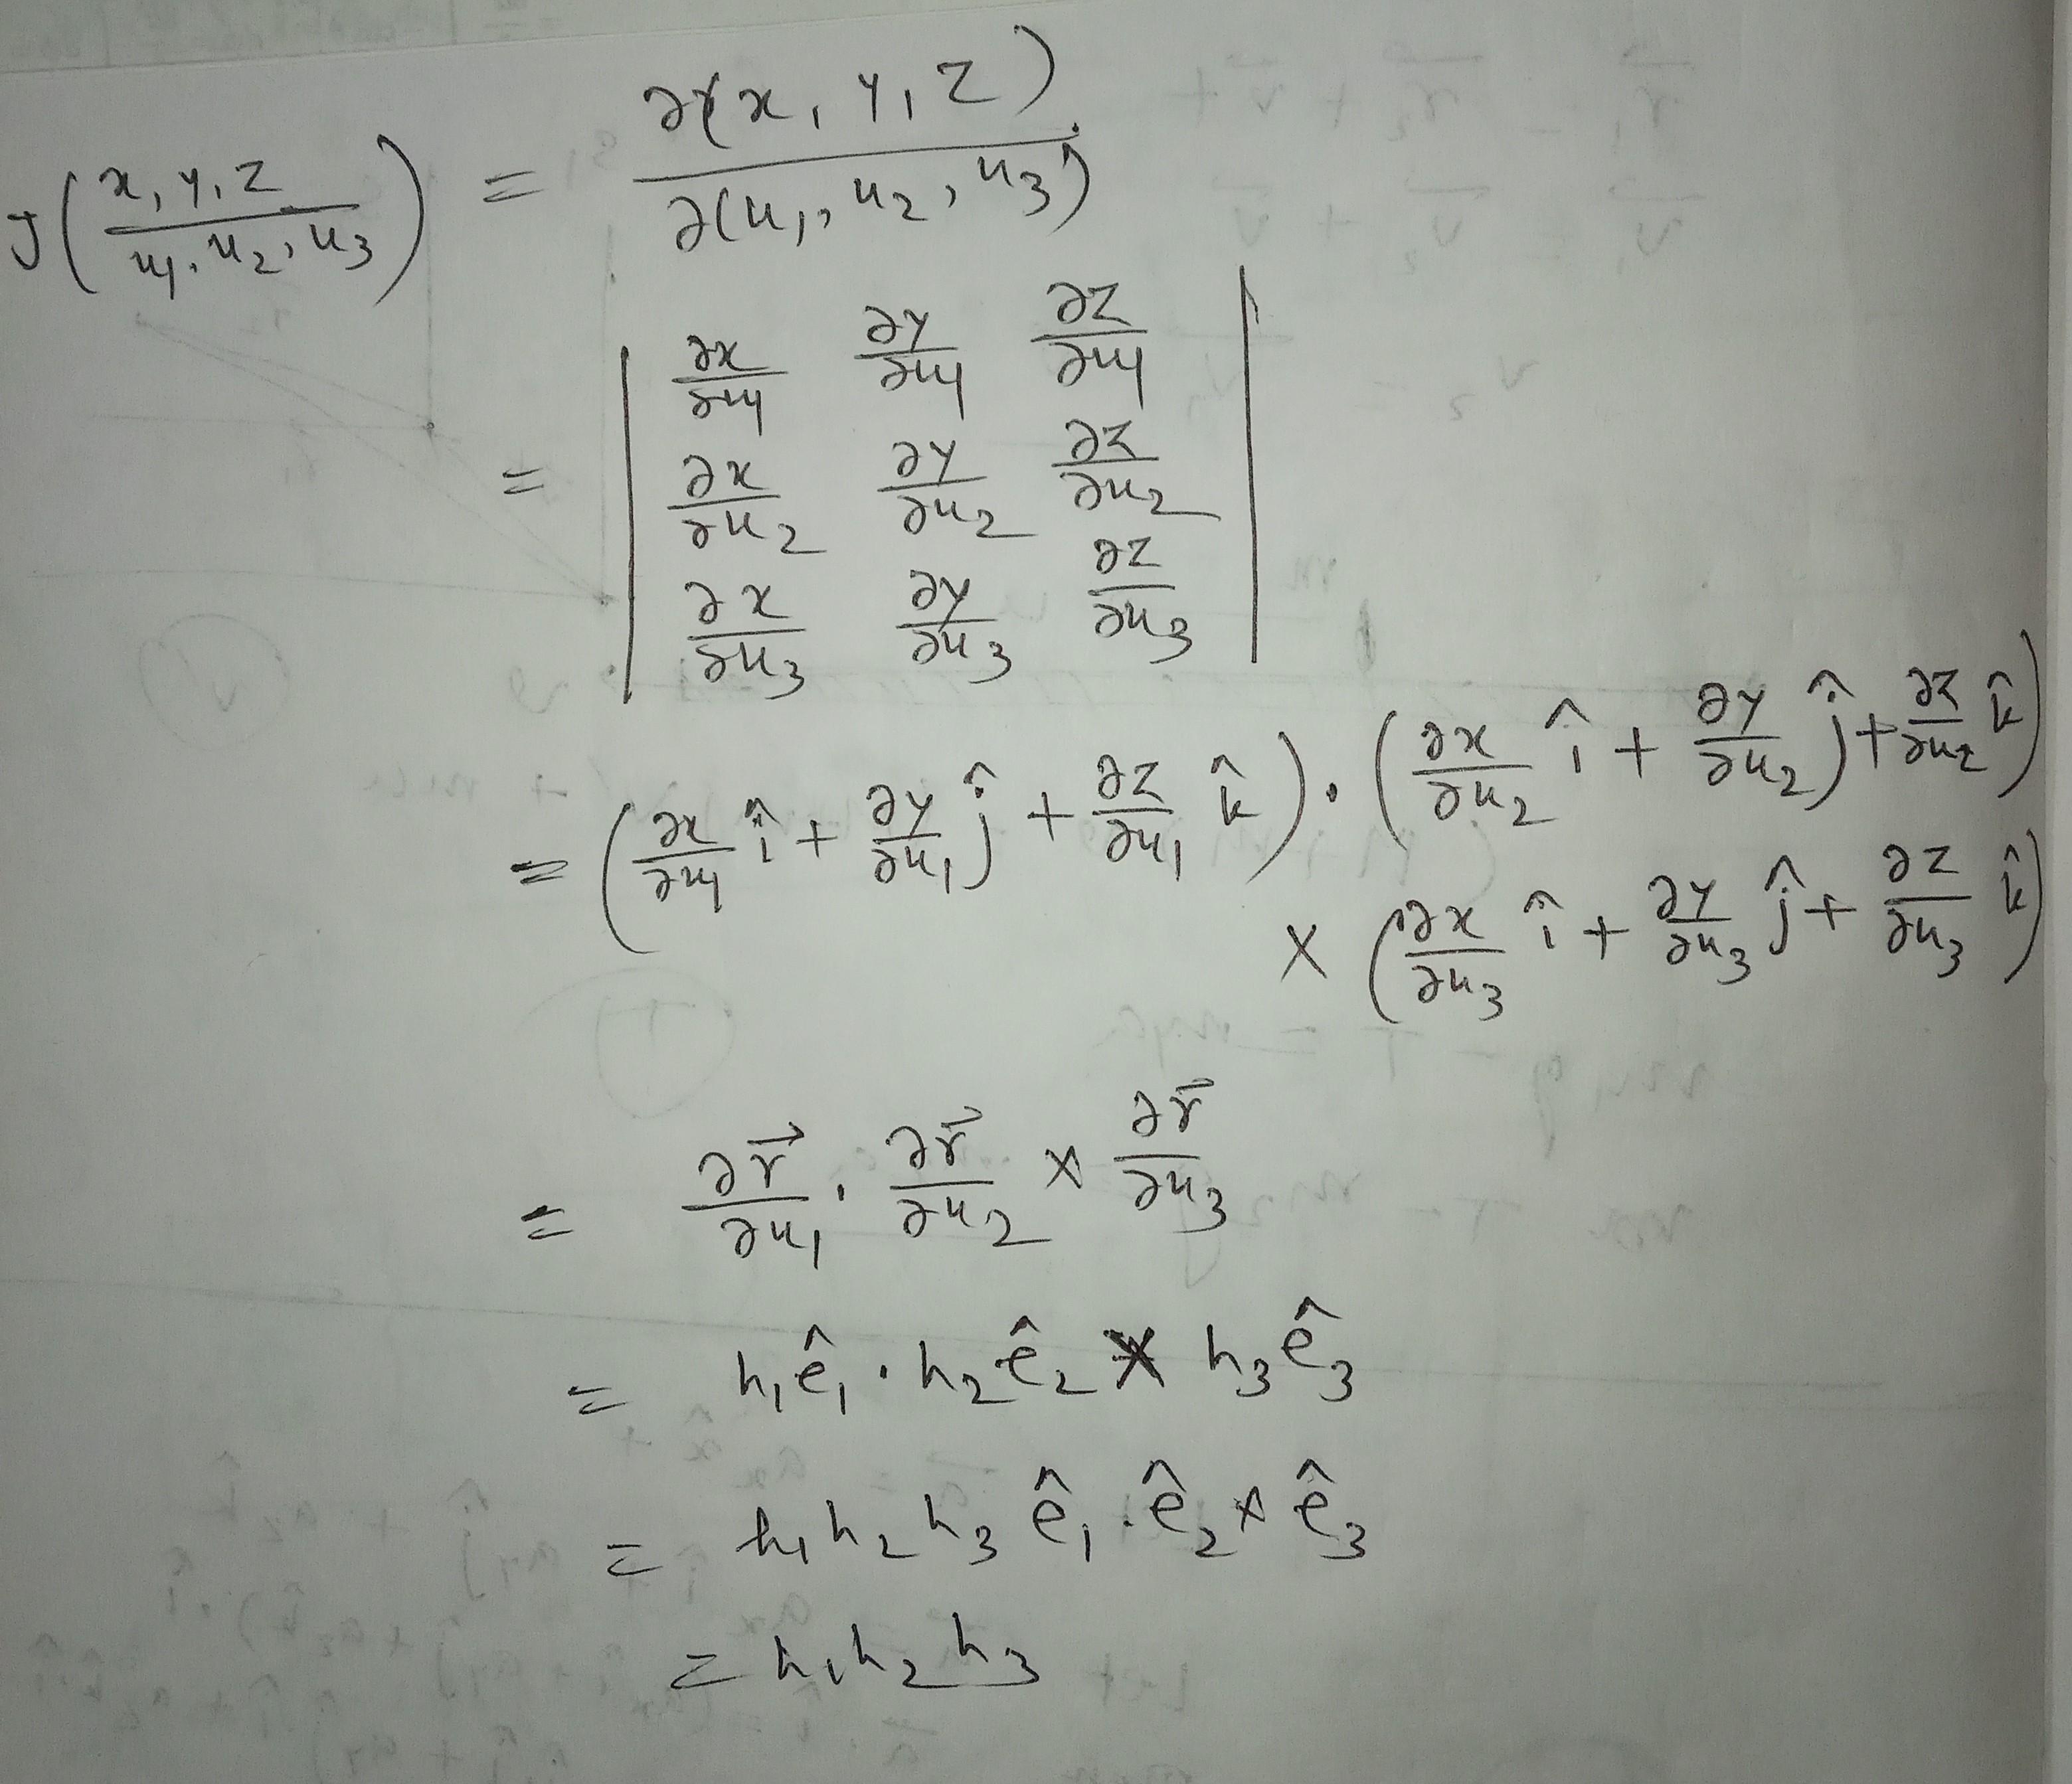 J(x, y, z / u₁, u₂, u₃) = ∂(x, y, z) / ∂(u₁, u₂, u₃)
= | ∂x/∂u₁ ∂y/∂u₁ ∂z/∂u₁ |
| ∂x/∂u₂ ∂y/∂u₂ ∂z/∂u₂ |
| ∂x/∂u₃ ∂y/∂u₃ ∂z/∂u₃ |
= (∂x/∂u₁ î + ∂y/∂u₁ ĵ + ∂z/∂u₁ k̂) · (∂x/∂u₂ î + ∂y/∂u₂ ĵ + ∂z/∂u₂ k̂)
× (∂x/∂u₃ î + ∂y/∂u₃ ĵ + ∂z/∂u₃ k̂)
= ∂r⃗/∂u₁ · ∂r⃗/∂u₂ × ∂r⃗/∂u₃
= h₁ê₁ · h₂ê₂ × h₃ê₃
= h₁h₂h₃ ê₁ · ê₂ × ê₃
= h₁h₂h₃